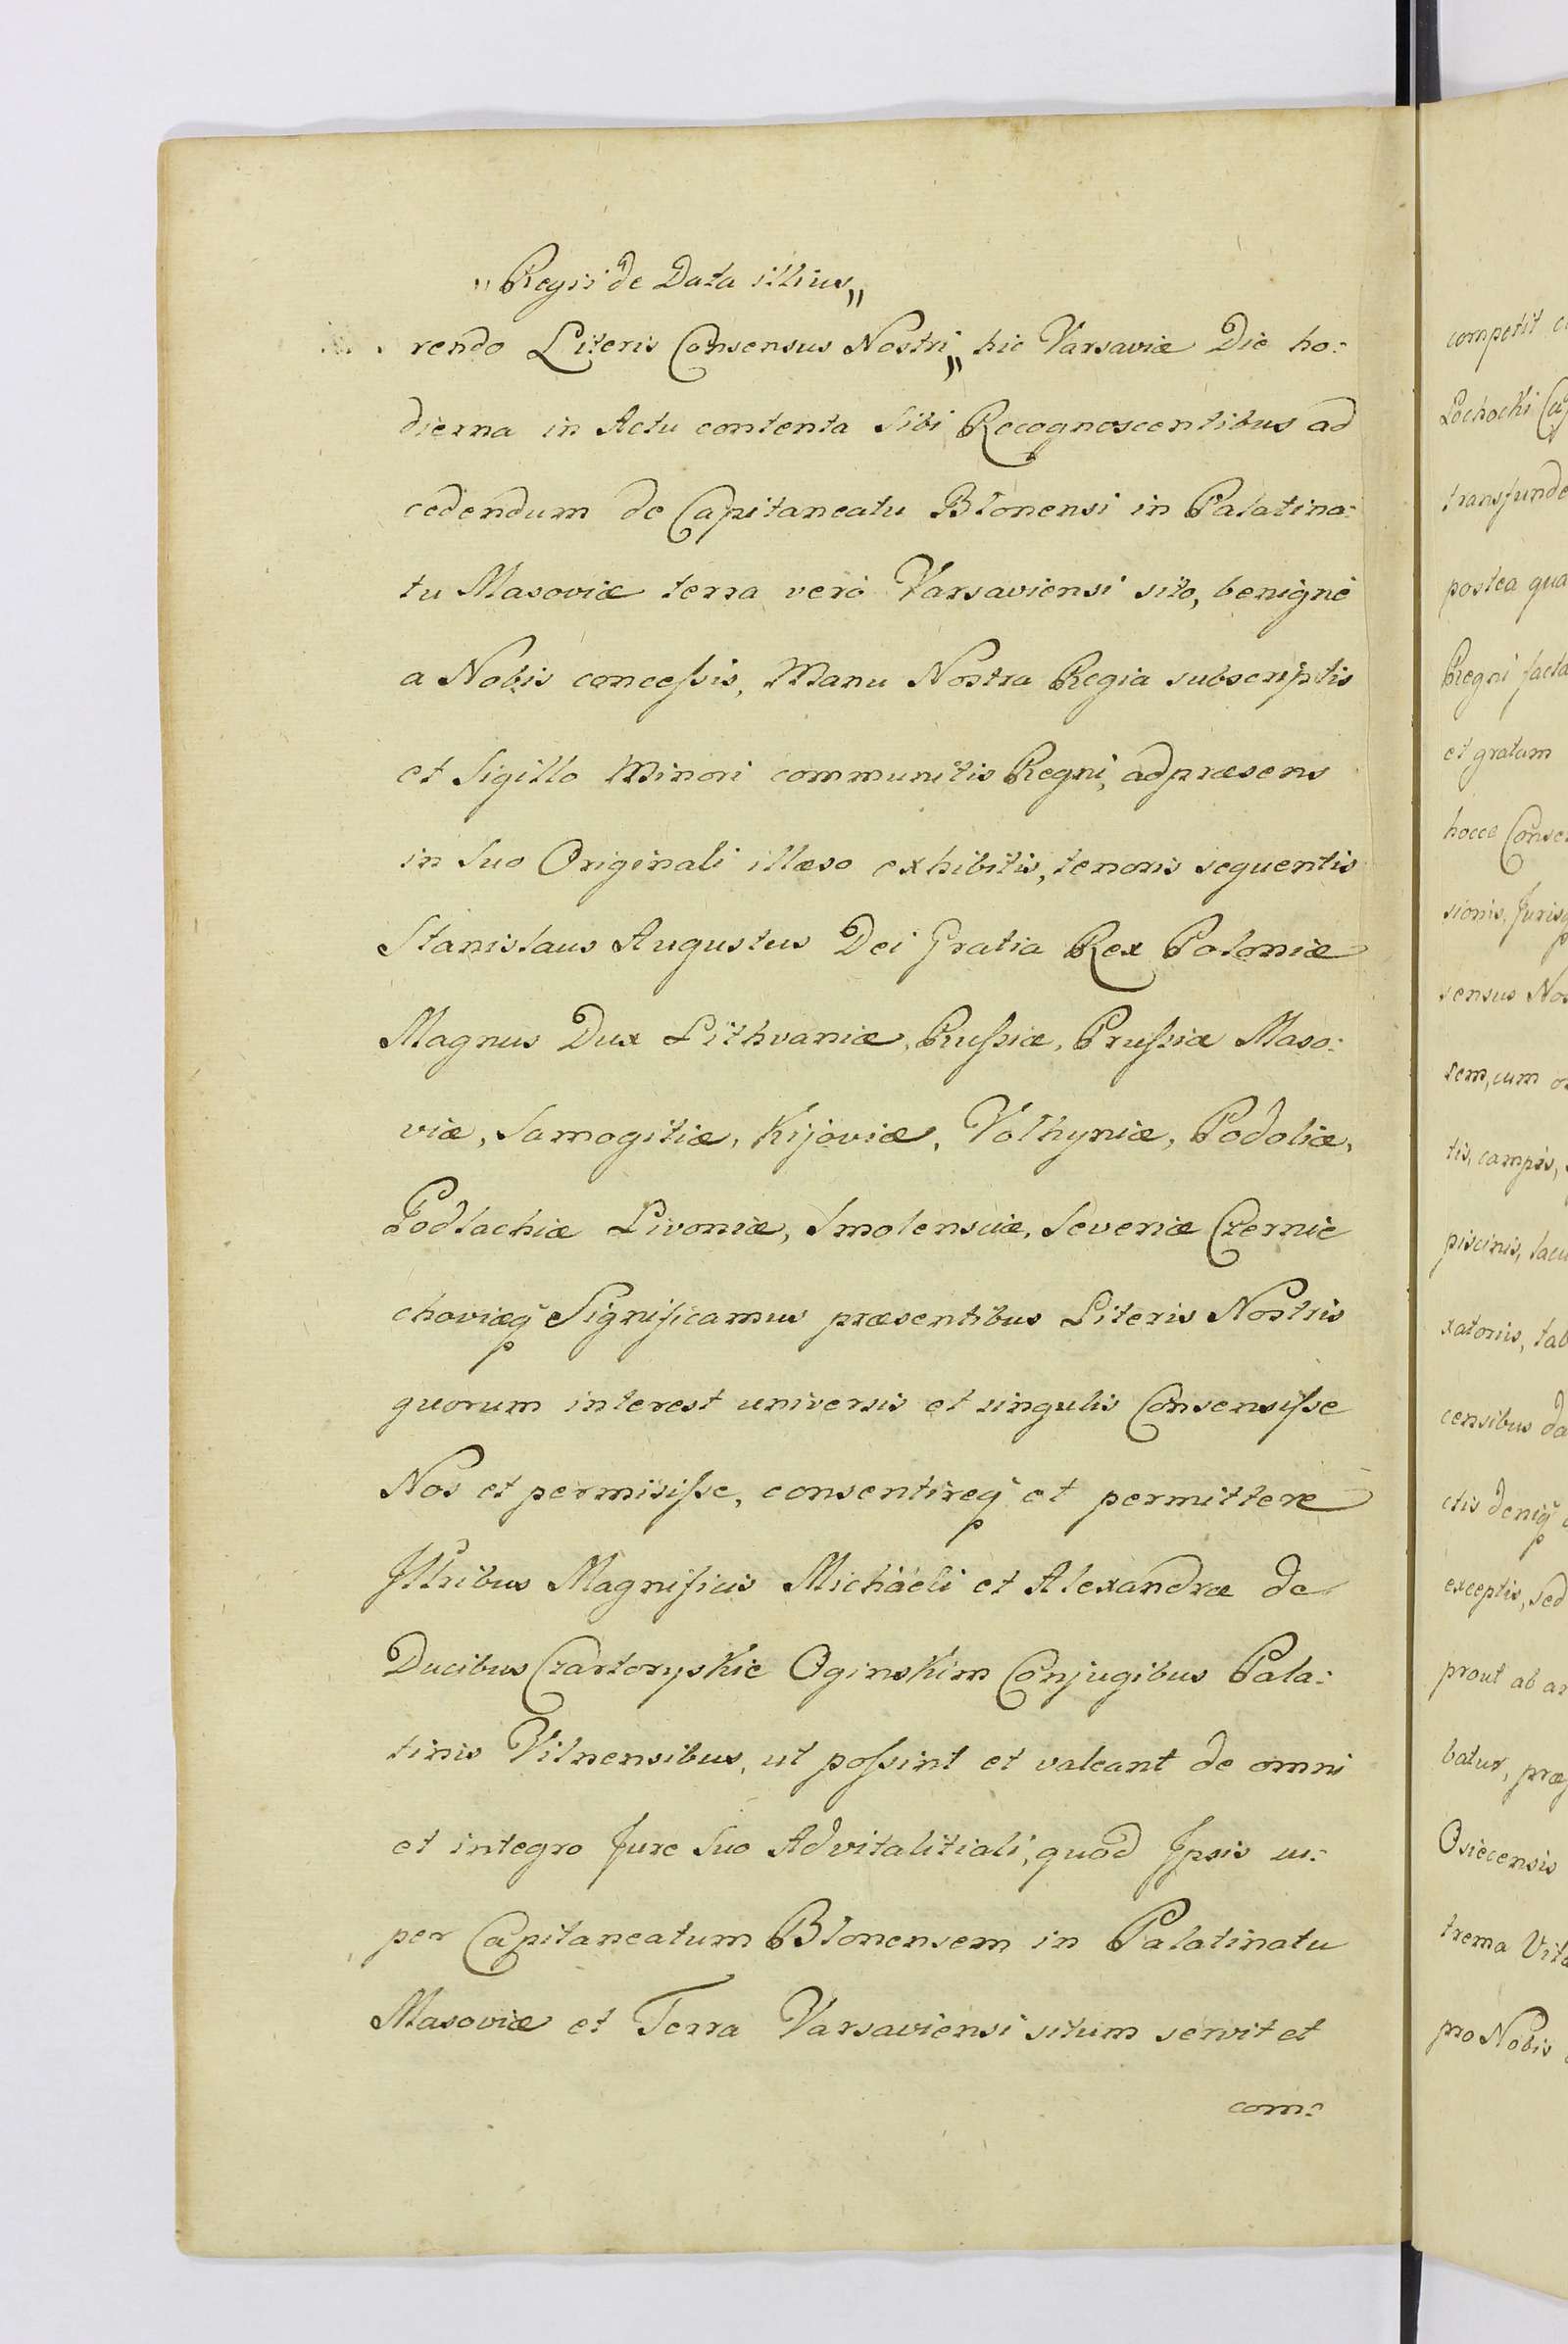 „Regii de Data illius„
rendo Literis Consensus Nostri„ hic Varsaviæ Die ho:
dierna in Actu contenta Sibi Recognoscentibus ad
cedendum de Capitaneatu Blonensi in Palatina:
tu Masoviæ terra verò Varsaviensi sito, benignè
a Nobis conceſsis, Manu Nostra Regia subscriptis
et Sigillo Minori communitis Regni, ad præsens
in Suo Originali illæso exhibitis, tenoris sequentis
Stanislaus Augustus Dei Gratia Rex Poloniæ
Magnus Dux Lithvaniæ, Ruſsiæ, Pruſsiæ Maso:
viæ, Samogitiæ, Kijoviæ, Volhyniæ, Podoliæ,
Podlachiæ Livoniæ, Smolensciæ, Severiæ Czernie
choviæq̃ Significamus præsentibus Literis Nostris
quorum interest universis et singulis Consensiſse
Nos et permisiſse, consentireq̃ et permittere
Illribus Magnificis Michäeli et Alexandræ de
Ducibus Czartoryskie Oginskim Conjugibus Pala:
tinis Vilnensibus, ut poſsint et valeant de omni
et integro Jure Suo Advitalitiali, quod Ipsis su:
per Capitaneatum Blonensem in Palatinatu
Masoviæ et Terra Varsaviensi situm servit et
com:
competit
Lochocki
transfunde
postea qua
Regni facta
et gratam
hocce Conse
sionis, Jurisq̃
sensus Nos
sem, cum
tis, campis,
piscinis, lacu
xatoriis, tab
censibus da
ctis deniq̃
exceptis, sed
prout ab
batur, præ
Osiecensis
trema Vita
pro Nobis